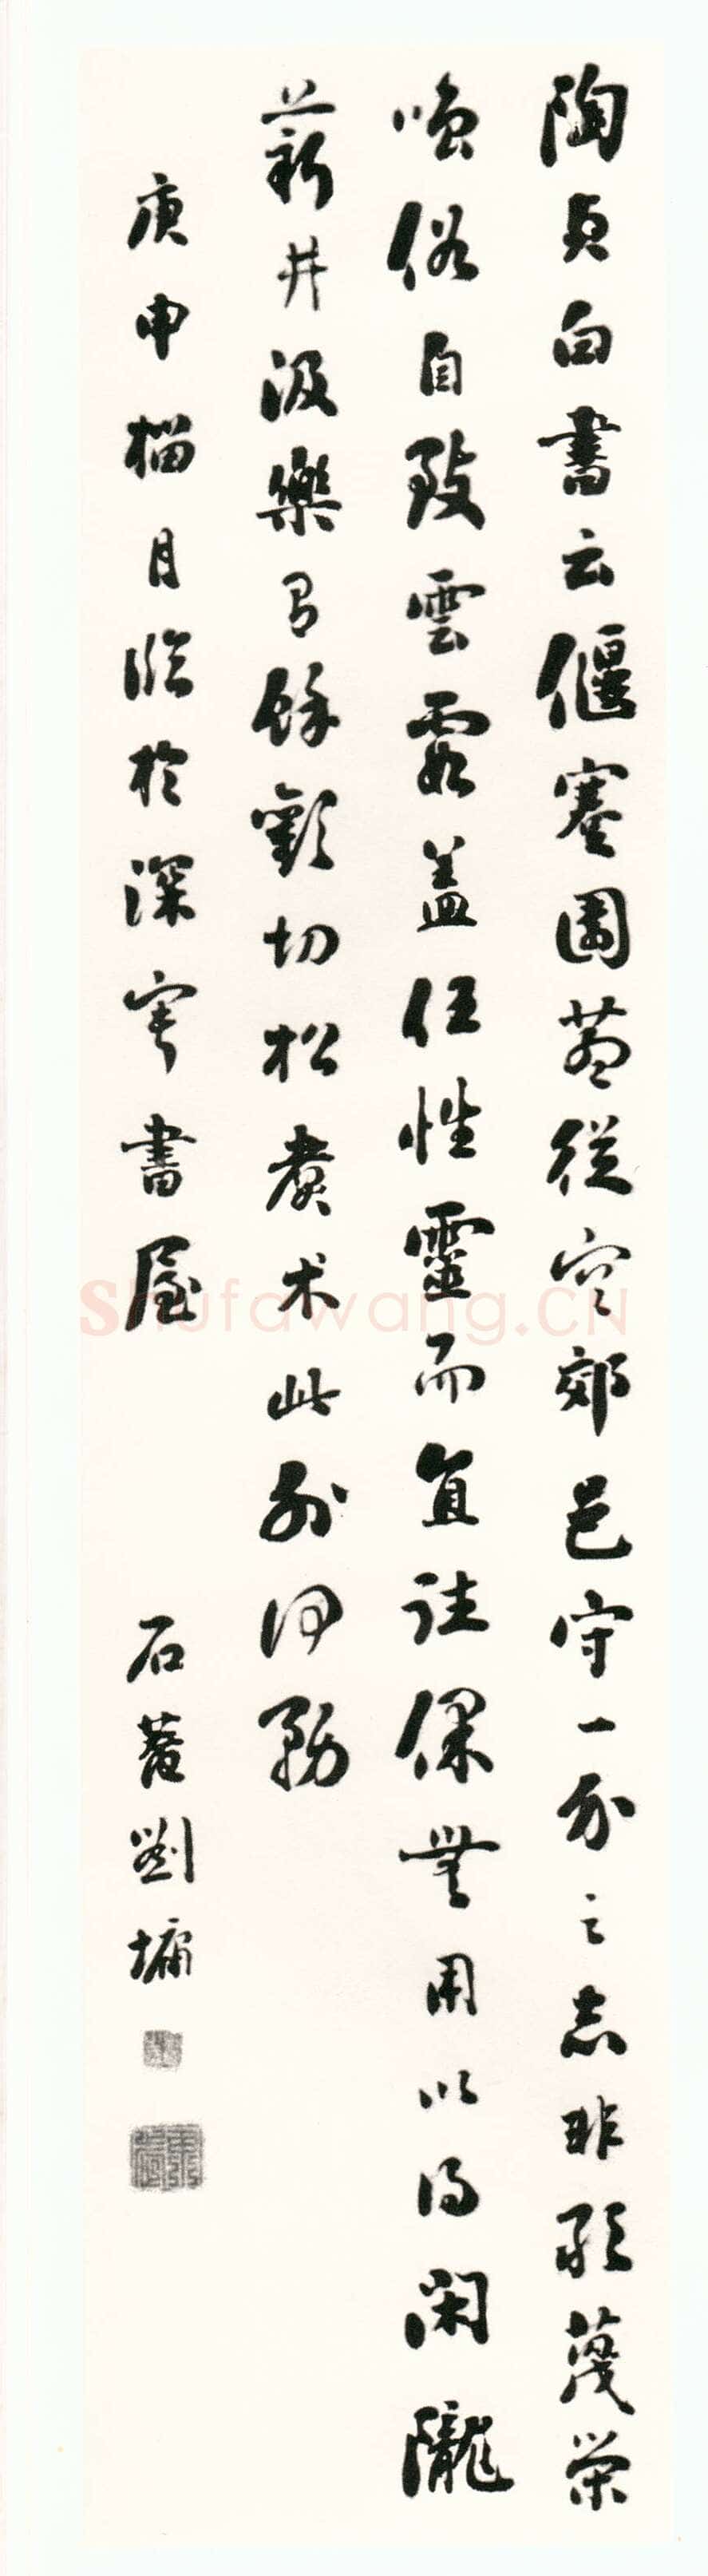 陶貞白書云偃蹇園巷從容郊邑守一介之志非敢蔑榮
嗤俗自致雲霞盖任性靈而直往保無用以得閑隴
薪井汲樂有餘歡切松煮术此外何務
庚申榴月臨於深寧書屋
石菴劉墉
Shufawang.CN